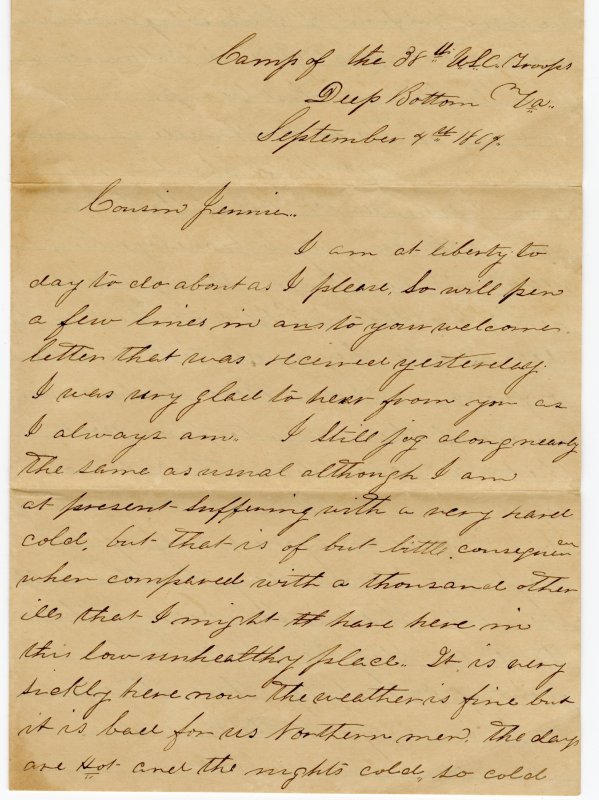 Camp of the 38th U.S.C. Troops
Deep Bottom Va.
September 1864.
Cousin Jennie..
I am at liberty to
day to do about as I please, So will pen
a few lines in ans to your welcome
letter that was received yesterday.
I was very glad to hear from you as
I always am. I Still jog along nearly
the same as usual although I am
at present suffering with a very hard
cold, but that is of but little consequence
when compared with a thousand other
ills that I might have here in
this low unhealthy place. It is very
sickly here now the weather is fine but
it is bad for us Northern men. The days
are Hot and the nights cold, so cold